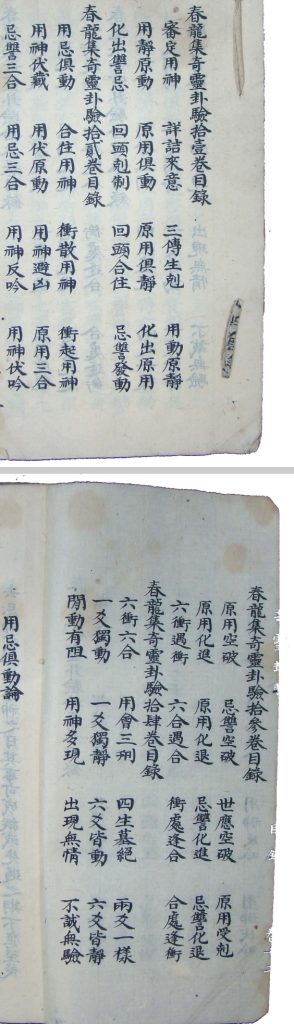 春龍集奇靈卦驗拾壹卷目錄
審定用神 詳詰來意 三傳生剋 用動原靜
用靜原動 原用俱動 原用俱靜 化出原用
化出讐忌 回頭剋制 回頭合住 忌讐發動
春龍集奇靈卦驗拾貳卷目錄
用忌俱動 合住用神 衝散用神 衝起用神
用神伏藏 用伏原動 用神避凶 原用三合
忌讐三合 用忌三合 用神反吟 用神伏吟
春龍集奇靈卦驗拾參卷目錄
原用空破 忌讐空破 世應空破 原用受剋
原用化進 原用化退 忌讐化進 忌讐化退
六衝遇衝 六合遇合 衝處逢合 合處逢衝
春龍集奇靈卦驗拾肆卷目錄
六衝六合 用會三刑 四生墓絕 兩爻一樣
一爻獨動 一爻獨靜 六爻皆動 六爻皆靜
閒動有阻 用神多現 出現無情 不誠無驗
用忌俱動論